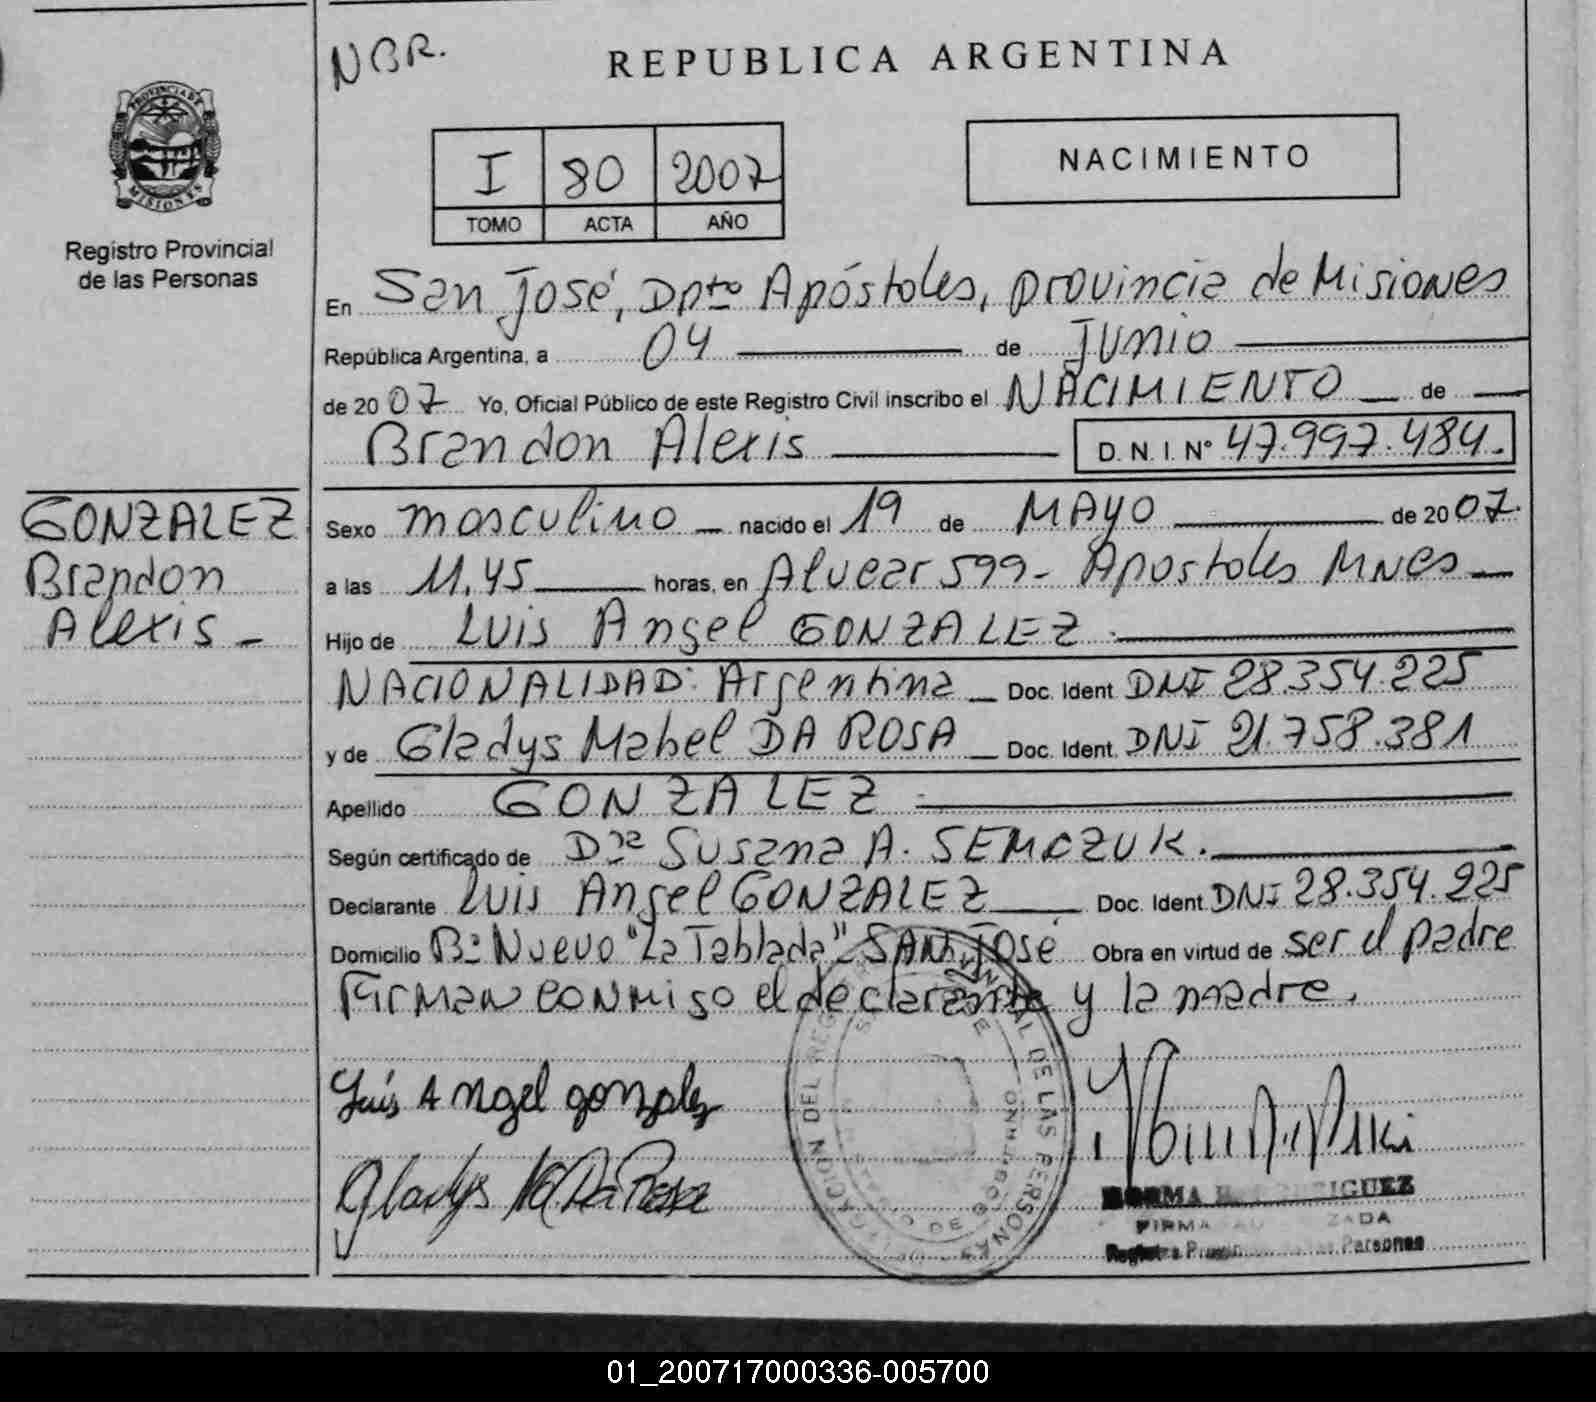 NBR.
REPUBLICA ARGENTINA
PROVINCIA DE
MISIONES
Registro Provincial
de las Personas
I 80 2007
TOMO ACTA AÑO
NACIMIENTO
En San José, Dpto Apóstoles, provincia de Misiones
República Argentina, a 04 de Junio
de 2007 Yo, Oficial Público de este Registro Civil inscribo el NACIMIENTO de
Brandon Alexis D. N. I. N° 47.997.484.
GONZALEZ
Brandon
Alexis -
Sexo masculino nacido el 19 de MAYO de 2007.
a las 11.45 horas, en Alvear 599 - Apostoles Mnes
Hijo de Luis Angel GONZALEZ.
NACIONALIDAD: Argentina Doc. Ident DNI 28.354.225
y de Gladys Mabel DA ROSA Doc. Ident. DNI 21.758.381
Apellido GONZALEZ.
Según certificado de Dra Susana A. SEMCZUK.
Declarante Luis Angel GONZALEZ Doc. Ident DNI 28.354.225
Domicilio B° Nuevo "La Tablada" SAN José Obra en virtud de ser el padre
Firman conmigo el declarante y la madre.
Luis Angel gonzalez
Gladys Da Rosa
DE LAS PERSONAS
DE GOBIERNO
NORMA RODRIGUEZ
FIRMA AUTORIZADA
Registro Provincial de las Personas
01_200717000336-005700